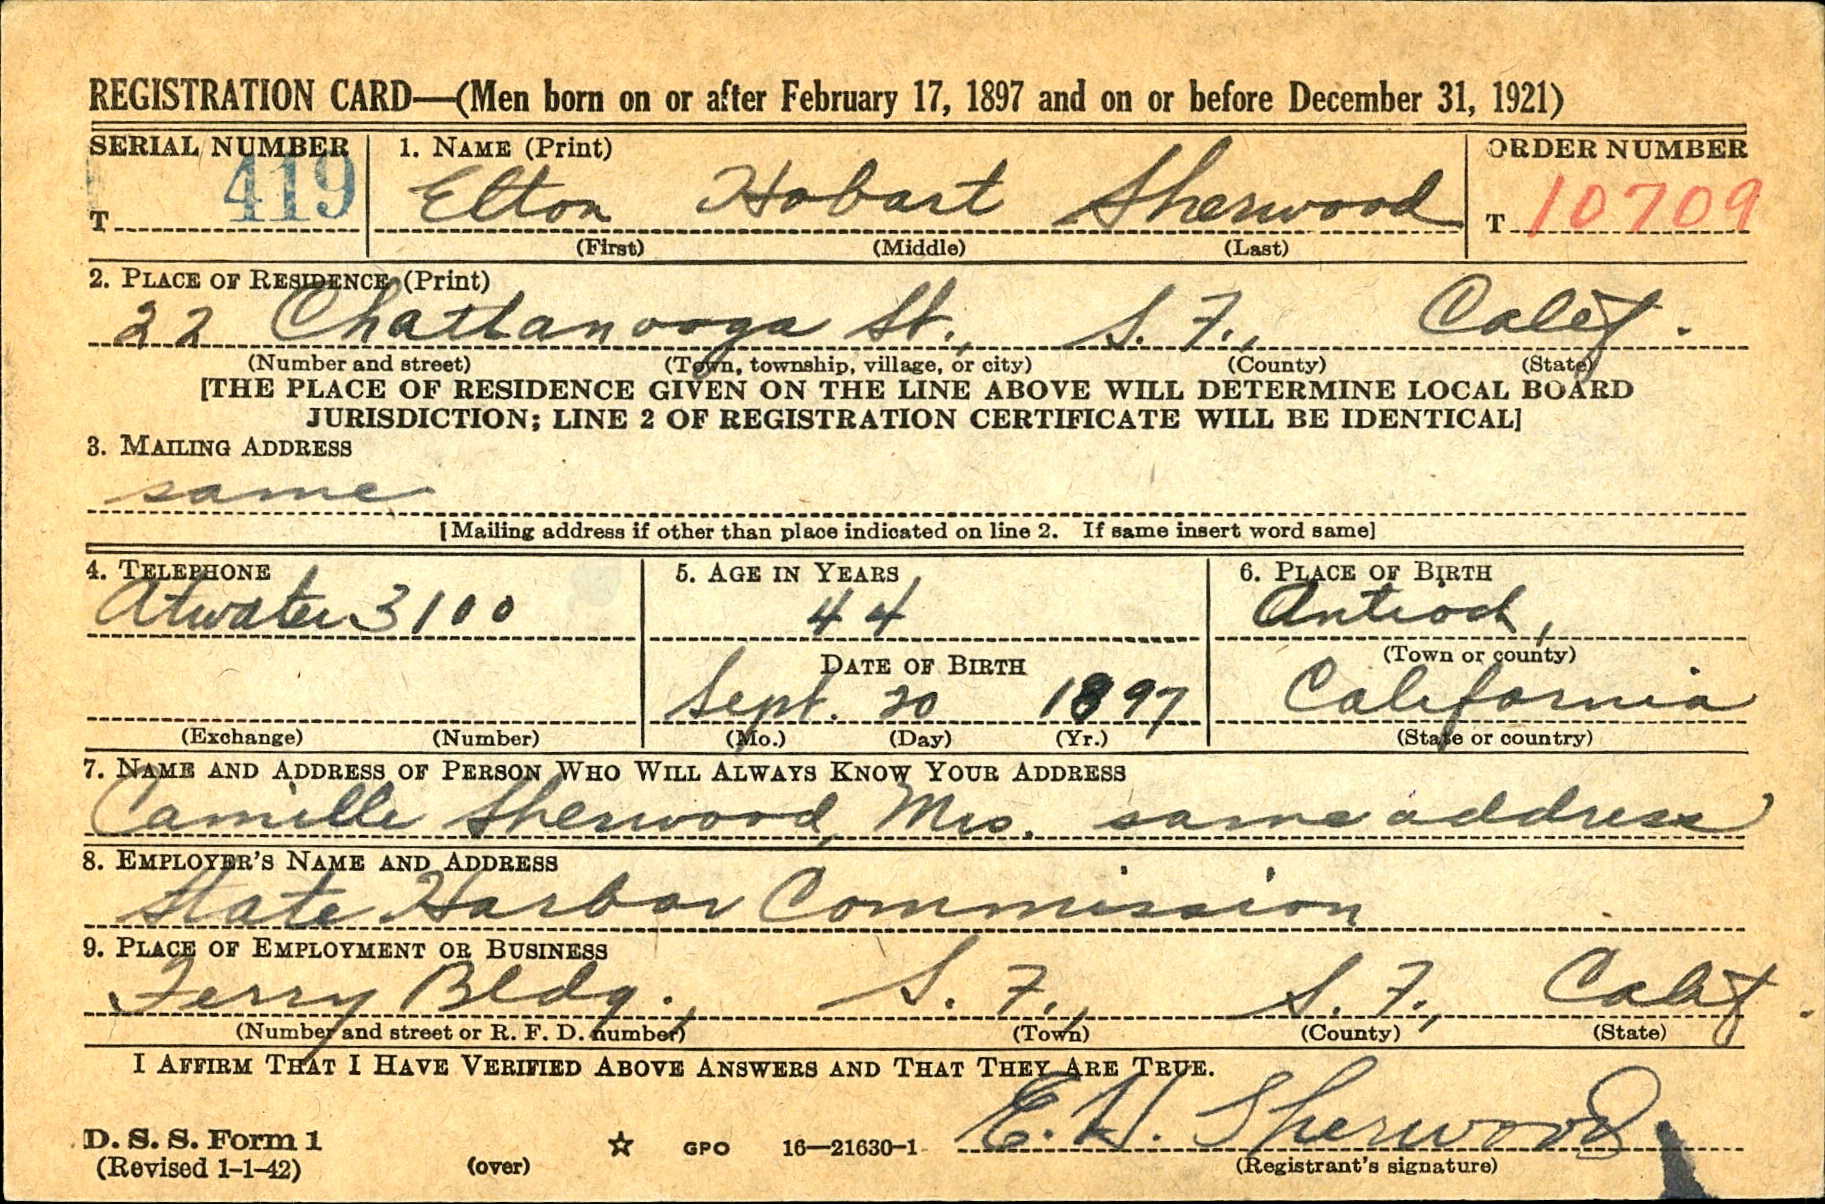 REGISTRATION CARD—(Men born on or after February 17, 1897 and on or before December 31, 1921)
SERIAL NUMBER 1. NAME (Print) ORDER NUMBER
T 419 Elton Hobart Sherwood T 10709
(First) (Middle) (Last)
2. PLACE OF RESIDENCE (Print)
22 Chattanooga St., S. F., Calif.
(Number and street) (Town, township, village, or city) (County) (State)
[THE PLACE OF RESIDENCE GIVEN ON THE LINE ABOVE WILL DETERMINE LOCAL BOARD
JURISDICTION; LINE 2 OF REGISTRATION CERTIFICATE WILL BE IDENTICAL]
3. MAILING ADDRESS
same
[Mailing address if other than place indicated on line 2. If same insert word same]
4. TELEPHONE 5. AGE IN YEARS 6. PLACE OF BIRTH
Atwater 3100 44 Antioch,
DATE OF BIRTH (Town or county)
Sept. 20 1897 California
(Exchange) (Number) (Mo.) (Day) (Yr.) (State or country)
7. NAME AND ADDRESS OF PERSON WHO WILL ALWAYS KNOW YOUR ADDRESS
Camille Sherwood, Mrs. same address
8. EMPLOYER'S NAME AND ADDRESS
State Harbor Commission
9. PLACE OF EMPLOYMENT OR BUSINESS
Ferry Bldg., S. F., S. F., Calif.
(Number and street or R. F. D. number) (Town) (County) (State)
I AFFIRM THAT I HAVE VERIFIED ABOVE ANSWERS AND THAT THEY ARE TRUE.
E. H. Sherwood
D. S. S. Form 1 GPO 16—21630-1
(Revised 1-1-42) (over) (Registrant's signature)